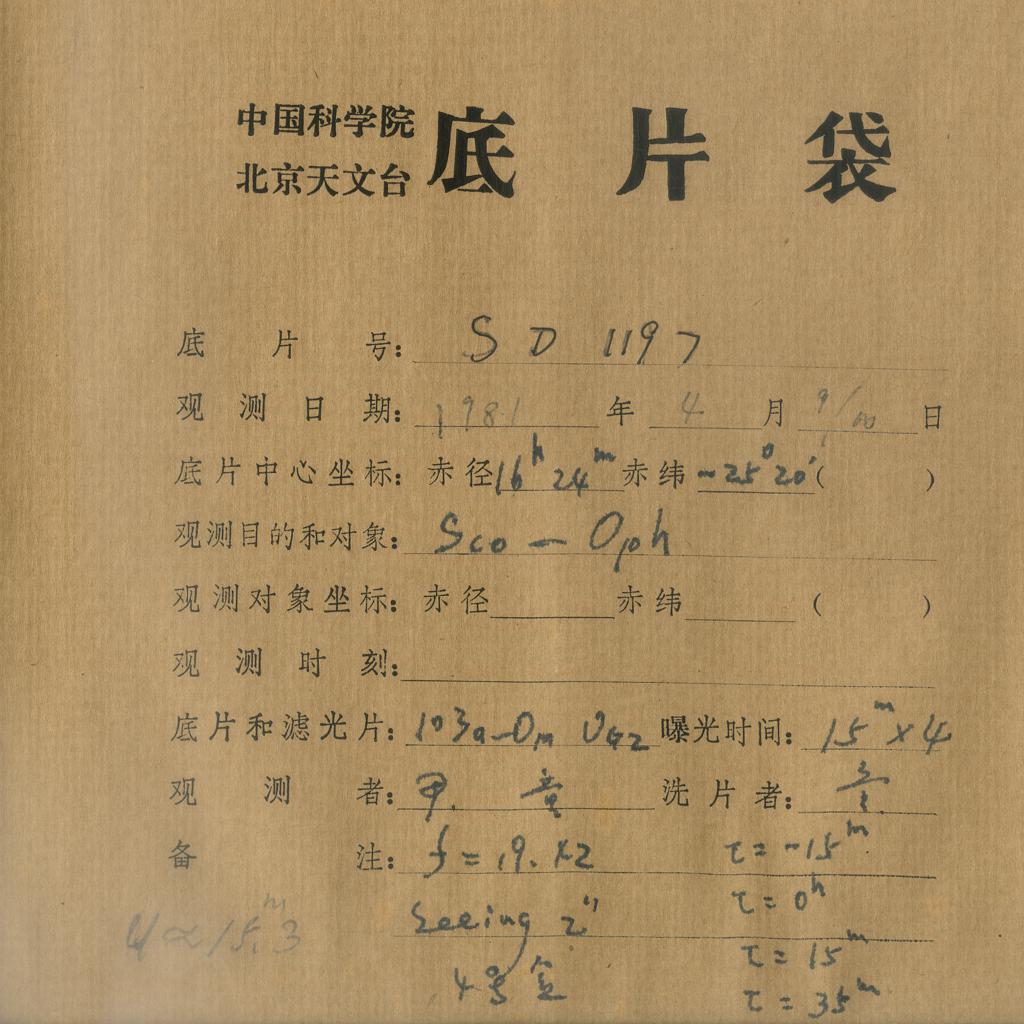 中国科学院
北京天文台 底片袋
底片号: SD 1197
观测日期: 1981 年 4 月 9/10 日
底片中心坐标: 赤径 16h 24m 赤纬 -25° 20' ( )
观测目的和对象: Sco - Oph
观测对象坐标: 赤径 赤纬 ( )
观测时刻:
底片和滤光片: 103a-O UG2 曝光时间: 15m × 4
观测者: 童 洗片者:
备注: f = 19. t = -15m
t = 0h
seeing 2" t = 15m
4号 t = 35m
U ≈ 15m.3